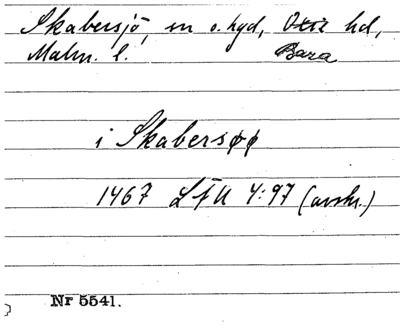 Skabersjö, sn o. hgd, Oxie hd,
Malm. l. Bara
i Skabersøø
1467 LfU 4:97 (avskr.)
Nr 5541.